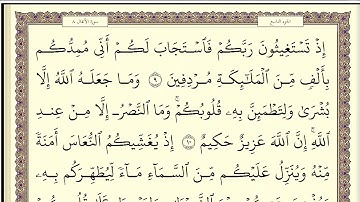 سورة الأنفال ٨
الجزء التاسع
إِذْ تَسْتَغِيثُونَ رَبَّكُمْ فَٱسْتَجَابَ لَكُمْ أَنِّى مُمِدُّكُم
بِأَلْفٍ مِّنَ ٱلْمَلَٰٓئِكَةِ مُرْدِفِينَ ٩ وَمَا جَعَلَهُ ٱللَّهُ إِلَّا
بُشْرَىٰ وَلِتَطْمَئِنَّ بِهِۦ قُلُوبُكُمْ ۚ وَمَا ٱلنَّصْرُ إِلَّا مِنْ عِندِ
ٱللَّهِ ۚ إِنَّ ٱللَّهَ عَزِيزٌ حَكِيمٌ ١٠ إِذْ يُغَشِّيكُمُ ٱلنُّعَاسَ أَمَنَةً
مِّنْهُ وَيُنَزِّلُ عَلَيْكُم مِّنَ ٱلسَّمَآءِ مَآءً لِّيُطَهِّرَكُم بِهِۦ